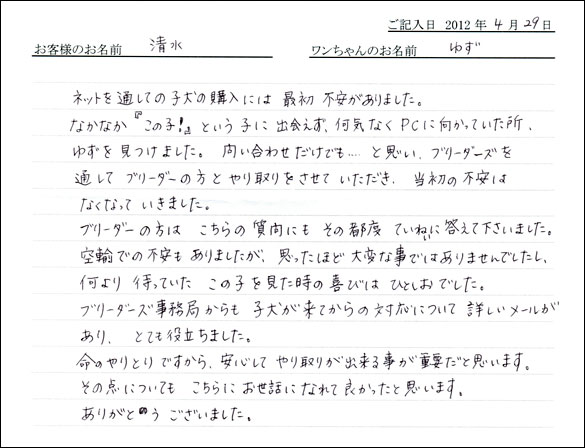 ご記入日 2012年4月29日
お客様のお名前 清水 ワンちゃんのお名前 ゆず
ネットを通しての子犬の購入には 最初 不安がありました。
なかなか『この子!』という子に出会えず、何気なくPCに向かっていた所、
ゆずを見つけました。 問い合わせだけでも‥‥と思い、ブリーダーズを
通して ブリーダーの方と やり取りをさせて いただき、当初の不安は
なくなって いきました。
ブリーダーの方は こちらの質問にも その都度 ていねいに答えて下さいました。
空輸での不安も ありましたが、思ったほど 大変な事では ありませんでしたし、
何より 待っていた この子を見た時の喜びは ひとしおでした。
ブリーダーズ事務局からも 子犬が来てからの対応について 詳しいメールが
あり、とても役立ちました。
命のやりとりですから、安心して やり取りが出来る事が重要だと思います。
その点についても こちらに お世話になれて良かったと思います。
ありがとう ございました。